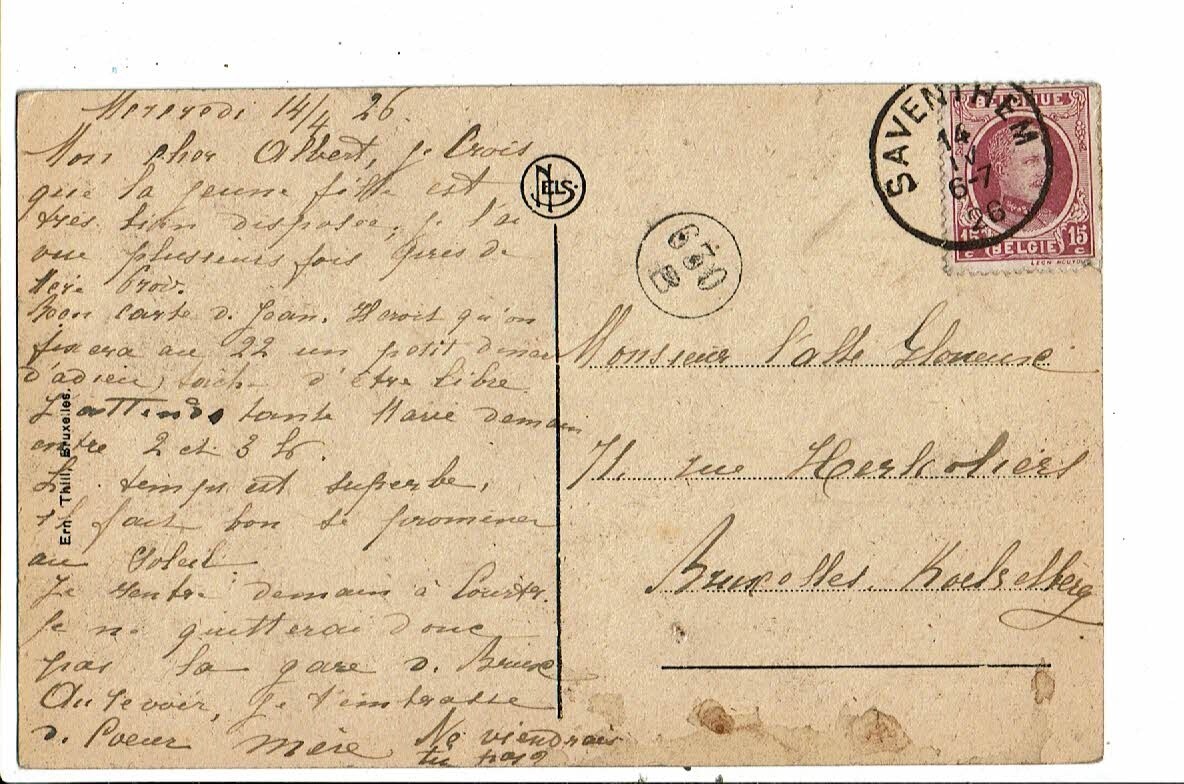 Mercredi 14/4 26.
Mon cher Albert, je Crois
que la jeune fille est
très bien disposée, je l'ai
vue plusieurs fois près de
Mère
Bon carte d. Jean. qu'on
fixera au 22 un petit diner
d'adieu, tach d'être libre
J'attends tante Marie demain
entre 2 et 3 h.
Le temps est superbe,
il fait bon se promener
au Soleil.
Je rentre demain à Courtr.
Je ne quitterai donc
pas la gare d. Brux
Au revoir, je t'embrasse
d. Coeur Mère
Ne viendrais
tu pas?
Ern. Thill, Bruxelles.
NELS
630
B
SAVENTHEM
14
6-7
26
BELGIQUE
15 c BELGIE 15 c
Monsieur l'abbé
71. rue Herkoliers
Bruxelles. Koekelberg